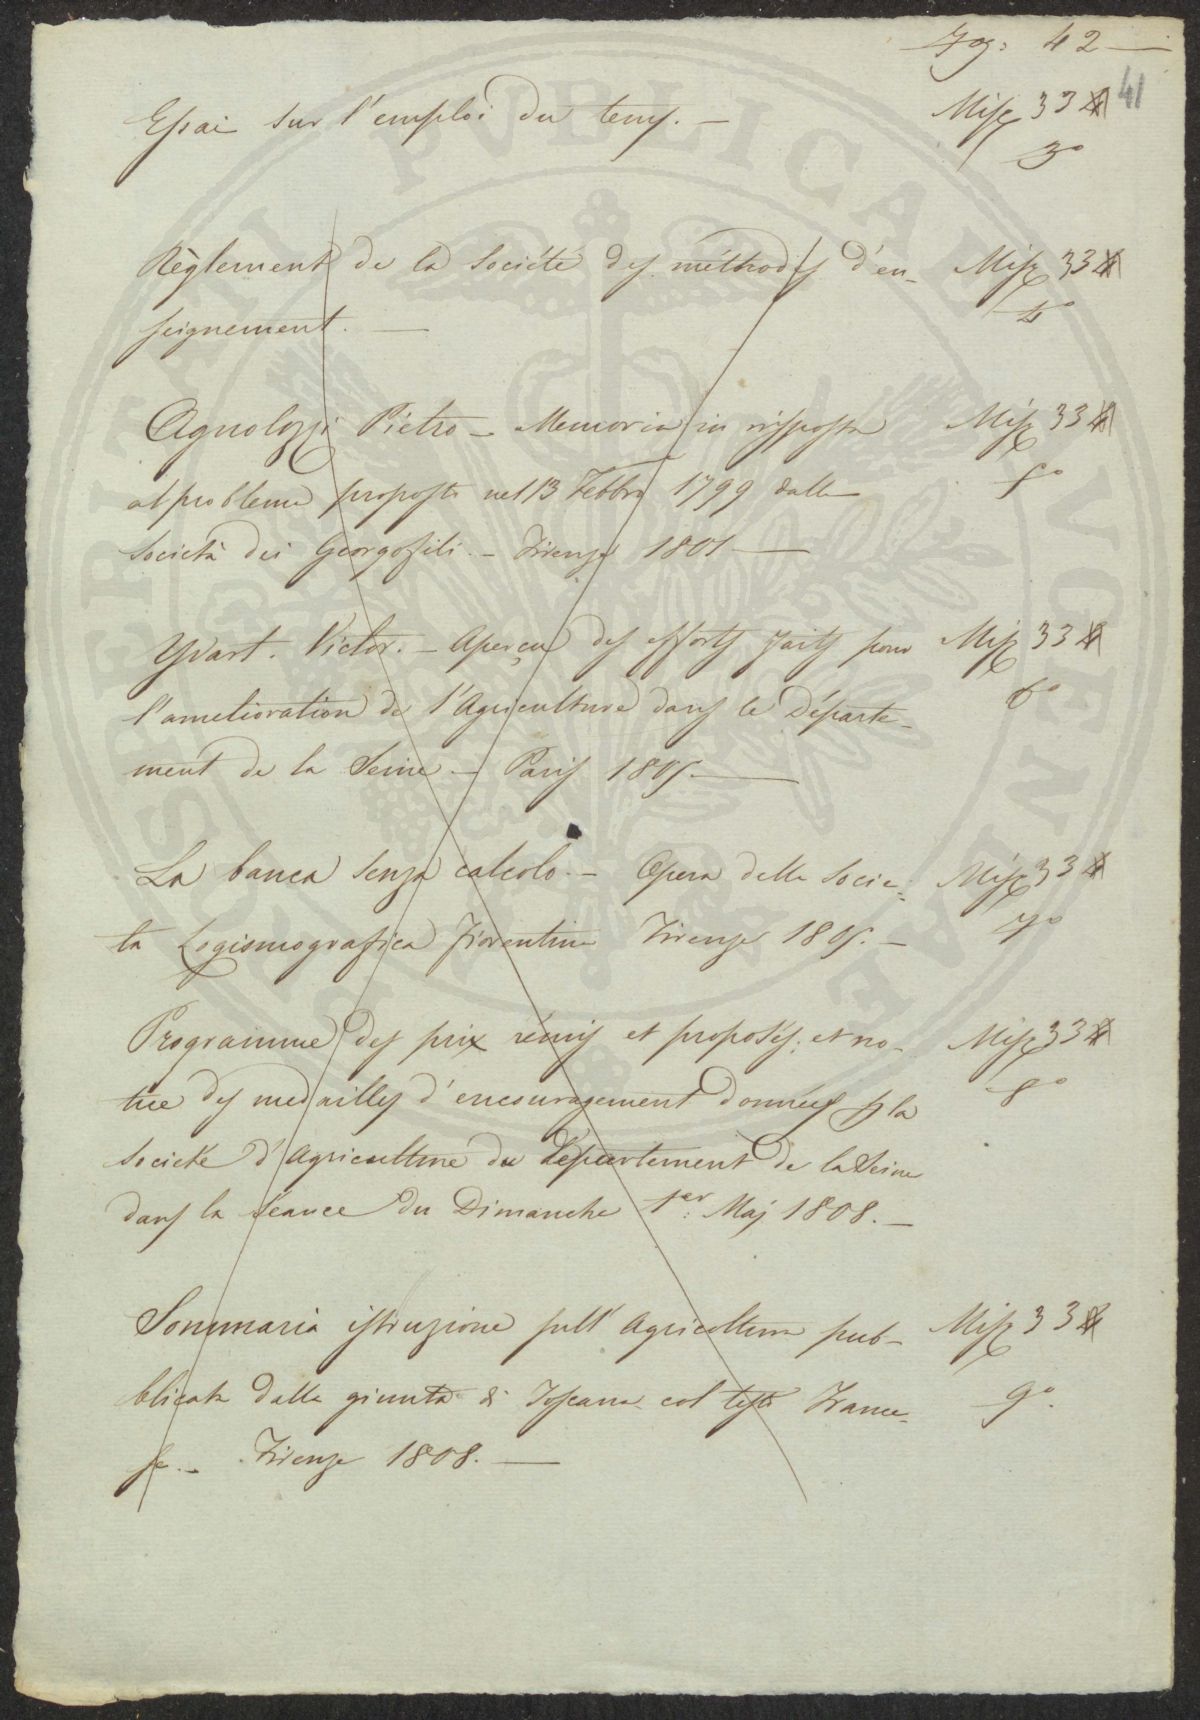 Fog: 42
41
Essai sur l'emploi du tems. — Misc 33
3°
Règlement de la Société des méthodes d'en- Misc 33
seignement. — 4°
Agnolozzi Pietro — Memoria in risposta Misc 33
al problema proposto nel 13 Febbro 1799 dalla 5°
Società dei Georgofili. — Firenze 1801 —
Yvart. Victor. — Aperçu des efforts faits pour Misc 33
l'amelioration de l'Agriculture dans le Départe- 6°
ment de la Seine — Paris 1805. —
La banca senza calcolo. — Opera della Socie= Misc 33
ta Logismografica fiorentina Firenze 1805. — 7°
Programme des prix remis et proposés; et no- Misc 33
tice des medailles d'encouragement donnees p la 8°
Societé d'Agriculture du Département de la Seine
dans la Séance du Dimanche 1.er Maj 1808. —
Sommaria istruzione sull' Agricoltura pub- Misc 33
blicata dalla giunta di Toscana col testo France- 9°.
se. — Firenze 1808. —
PROSPERITATI PVBLICAE AVGENDAE